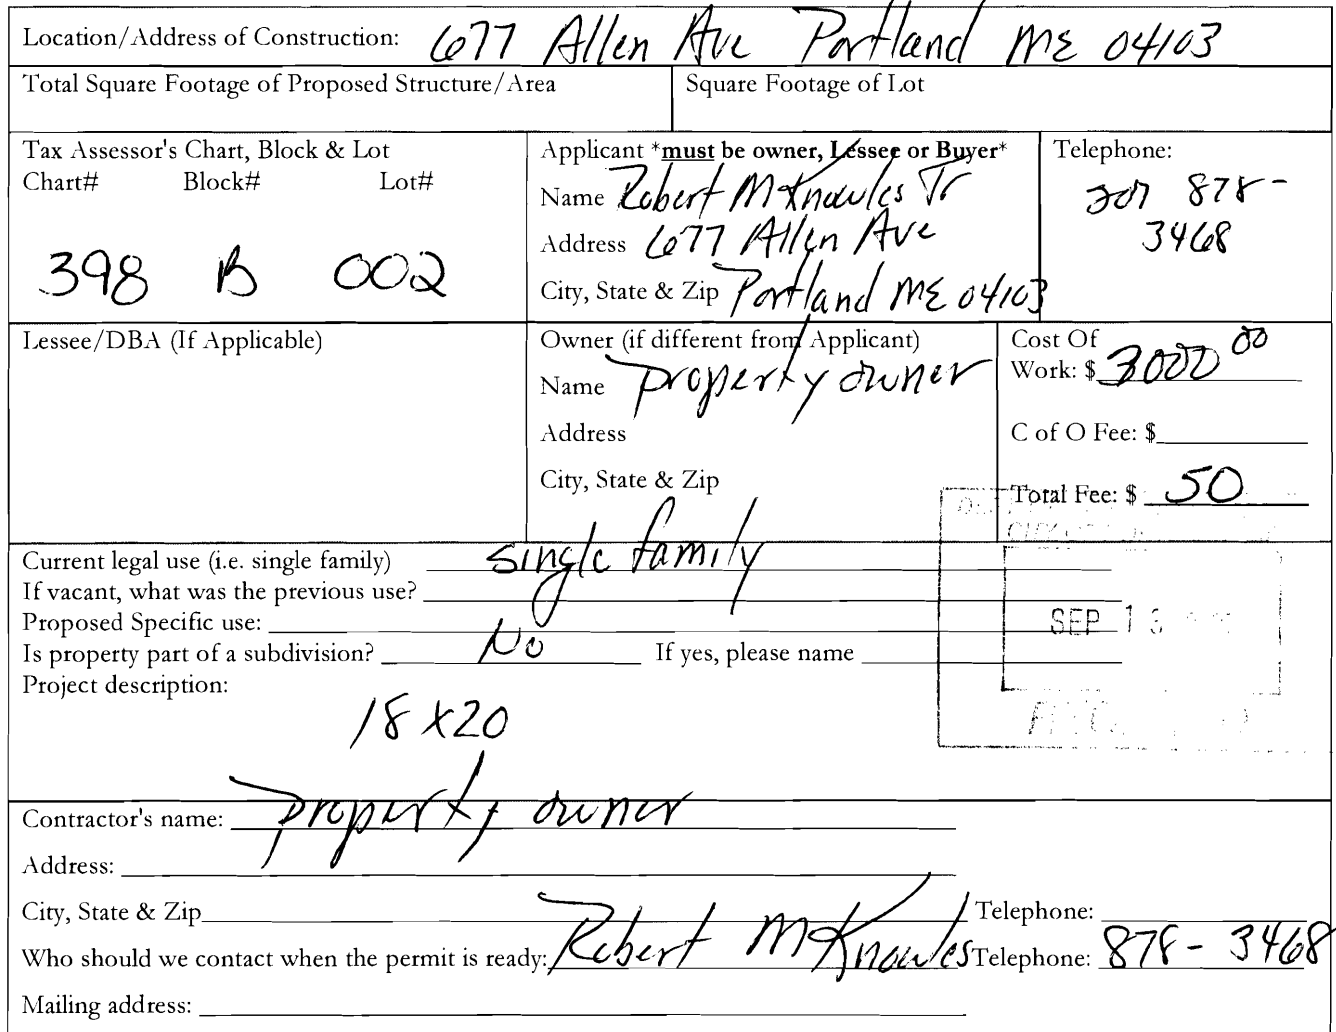 Location/Address of Construction: 677 Allen Ave Portland ME 04103
Total Square Footage of Proposed Structure/Area
Square Footage of Lot
Tax Assessor's Chart, Block & Lot
Chart# Block# Lot#
398 B 002
Applicant *must be owner, Lessee or Buyer*
Name Robert M Knowles Jr
Address 677 Allen Ave
City, State & Zip Portland ME 04103
Telephone:
207 878-
3468
Lessee/DBA (If Applicable)
Owner (if different from Applicant)
Name property owner
Address
City, State & Zip
Cost Of
Work: $ 3000 00
C of O Fee: $
Total Fee: $ 50
Current legal use (i.e. single family) single family
If vacant, what was the previous use?
Proposed Specific use:
Is property part of a subdivision? No If yes, please name
Project description:
18 x 20
SEP 13
Contractor's name: property owner
Address:
City, State & Zip Telephone:
Who should we contact when the permit is ready: Robert M Knowles Telephone: 878-3468
Mailing address: